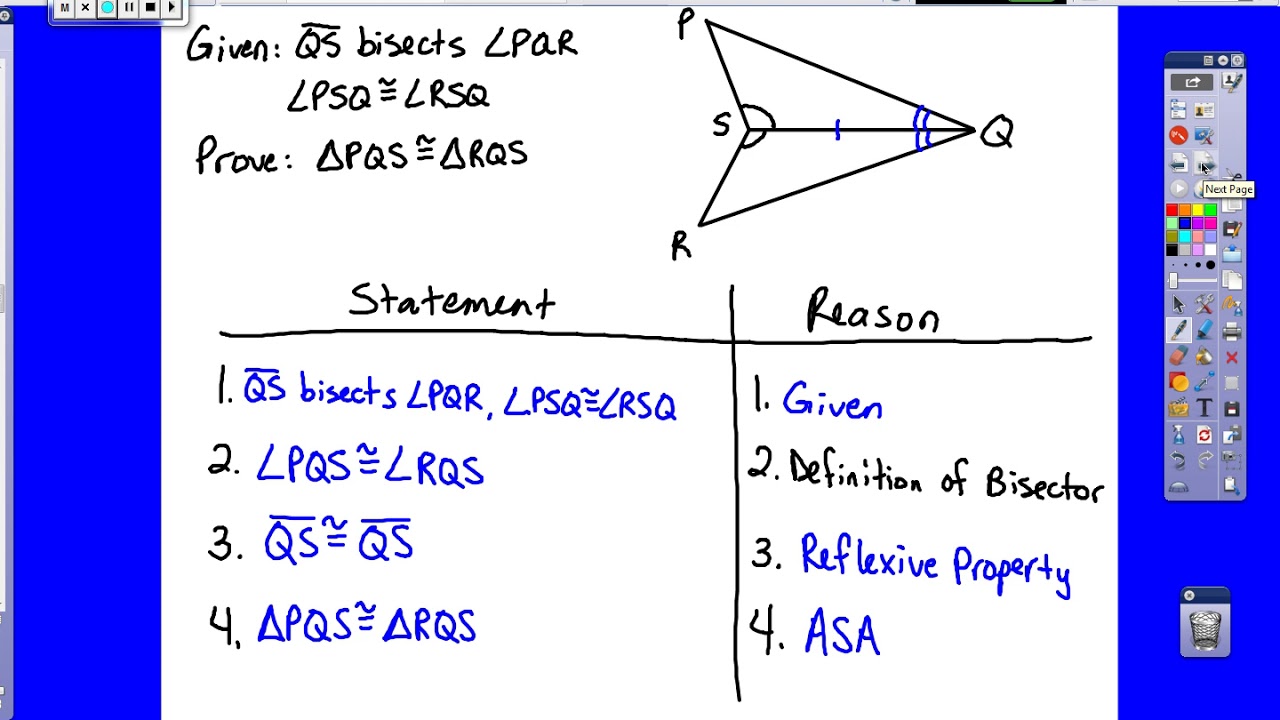 M
Given: QS bisects ∠PQR
∠PSQ ≅ ∠RSQ
Prove: ΔPQS ≅ ΔRQS
P
S
Q
R
Next Page
Statement
Reason
1. QS bisects ∠PQR, ∠PSQ≅∠RSQ
1. Given
2. ∠PQS ≅ ∠RQS
2. Definition of Bisector
3. QS ≅ QS
3. Reflexive Property
4. ΔPQS ≅ ΔRQS
4. ASA
T